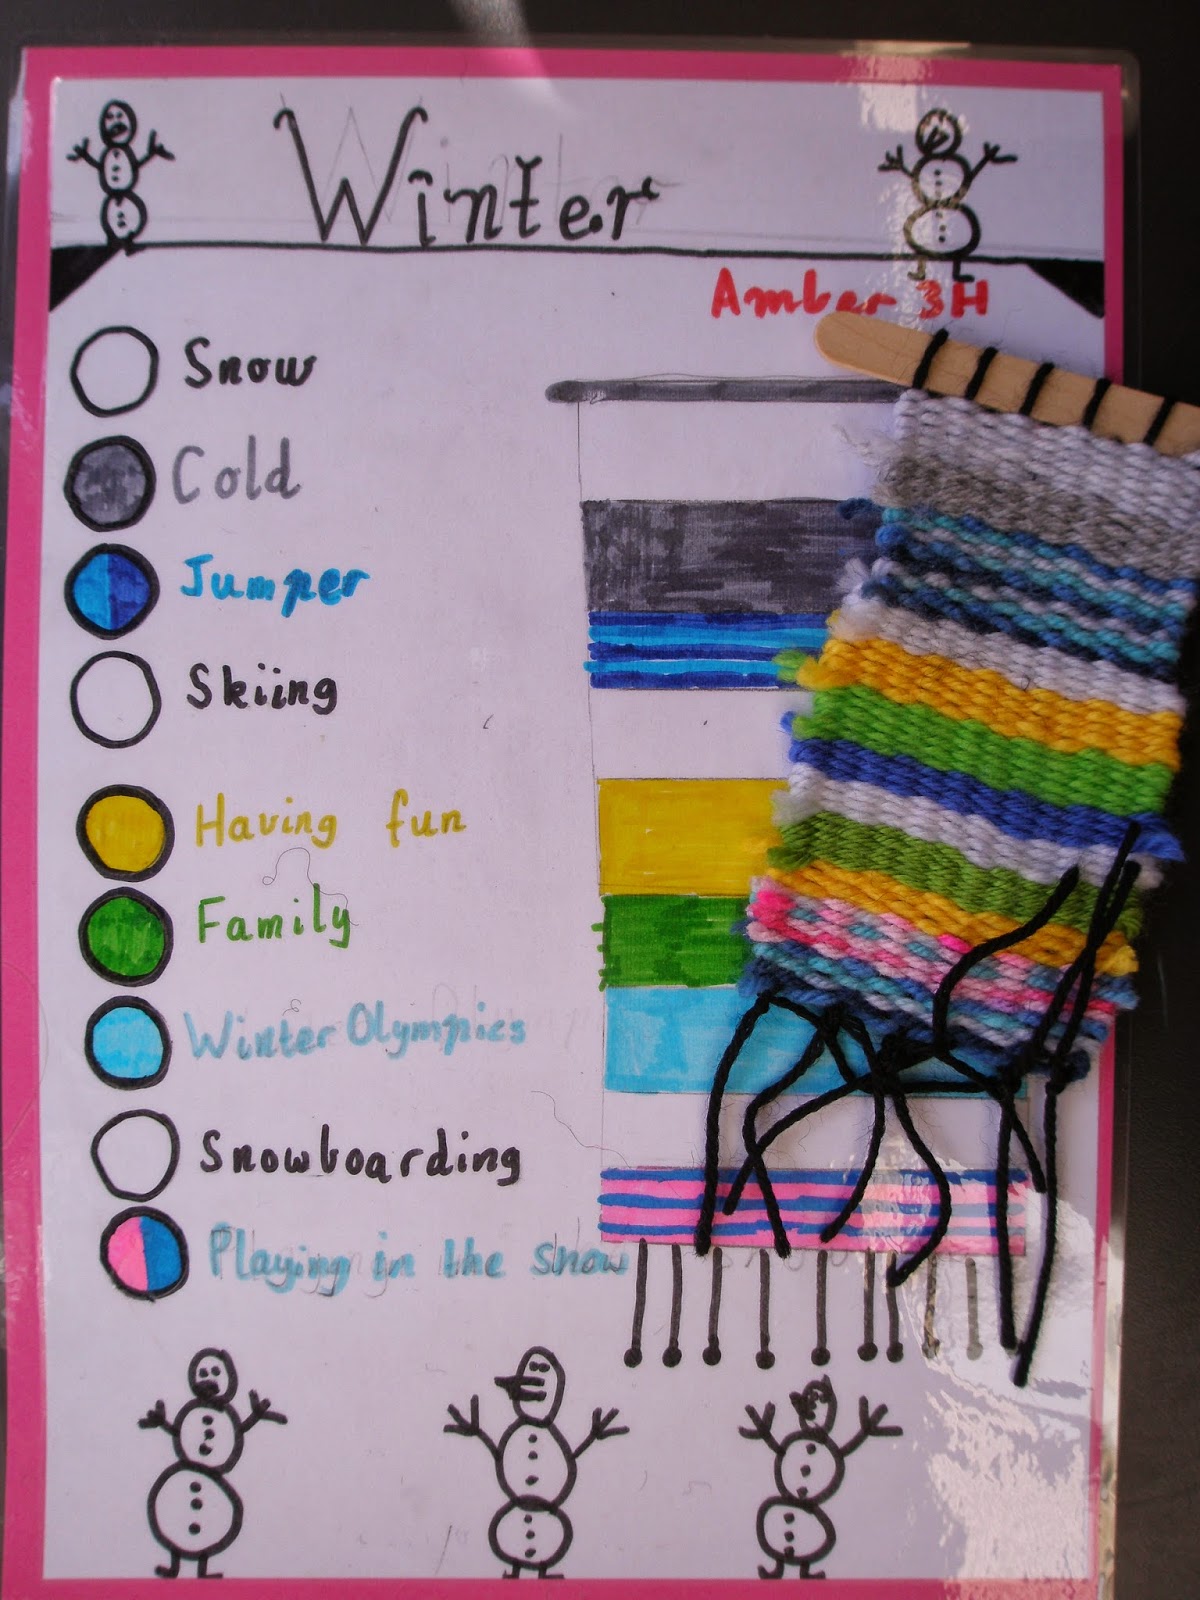 Winter
Amber 3H
Snow
Cold
Jumper
Skiing
Having fun
Family
Winter Olympics
Snowboarding
Playing in the snow